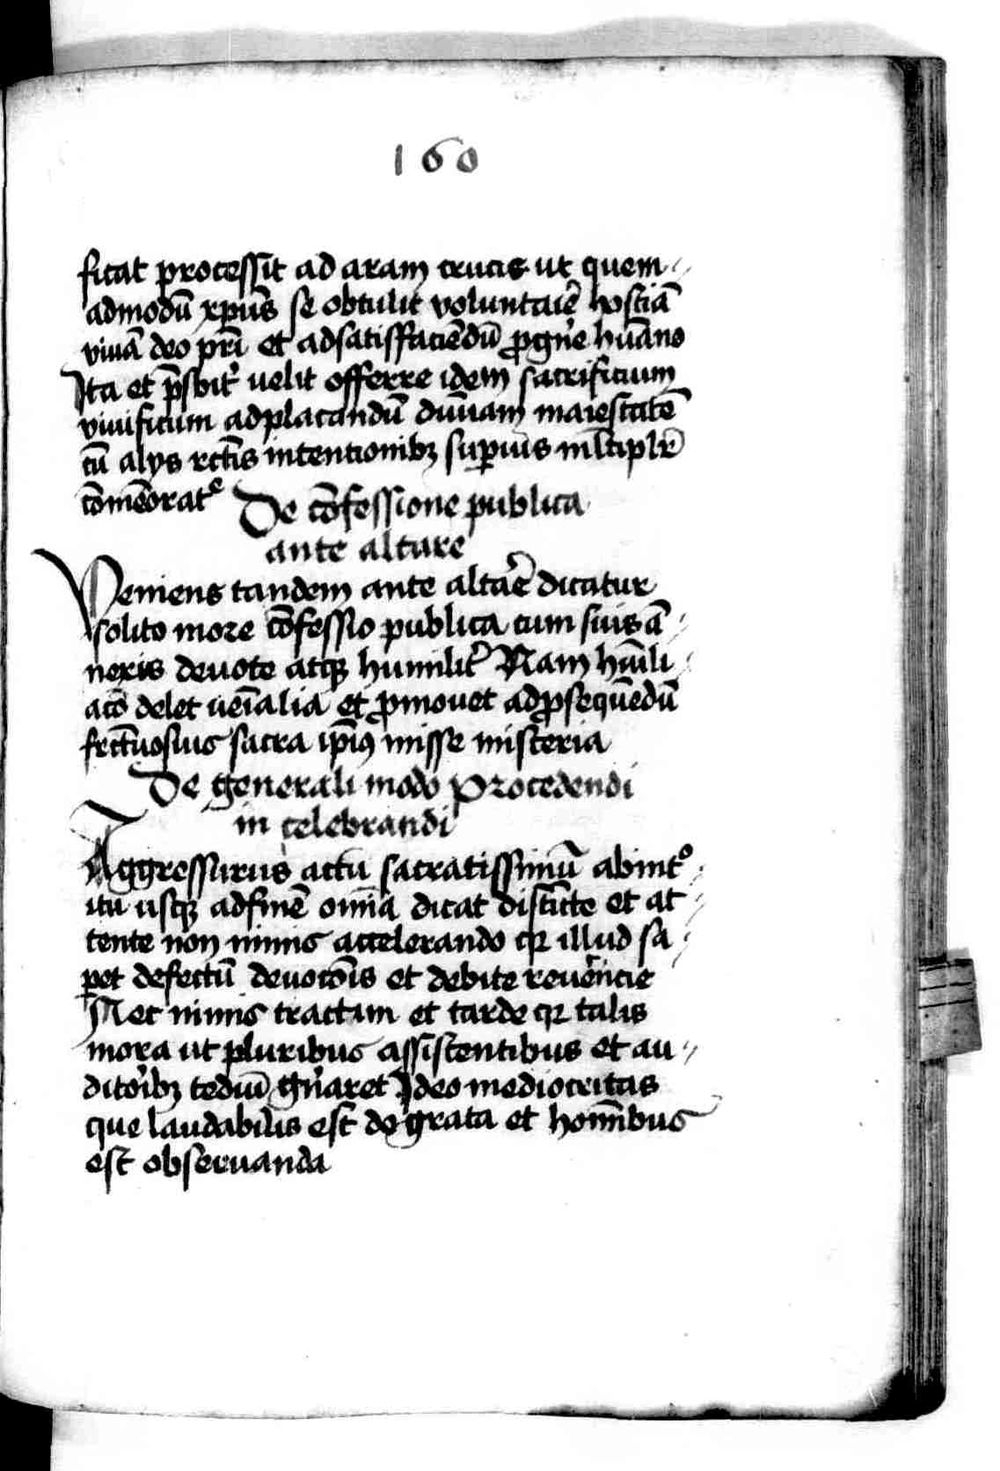 160
ficat processit ad aram crucis ut quem
admodū xpūs se obtulit voluntaiē hostiā
viuā deo pr̄i et adsatisffaciēdū ꝓ gn̄e hūano
Ita et p̄sbit̾ uelit offerre idem sacrificium
viuificum adplacandū diuīam maiestatē
cū alys rct̄is intentionibꝫ suꝑius ml̄tiplr̄
cōmēorat᷒ De cōfessione publica
ante altare
Veniens tandem ante altar̄e dicatur
solito more cōfessio publica cum suis ā
nexis deuote atqꝫ humilit̾ Nam hūili
acō delet ueīalia et ꝓmouet adꝓsequēdū
frct̄uosius sacra ip̄iꝰ misse misteria
De generali modo procedendi
in celebrandi
Aggressurus actū sacratissimū abint᷒
itu usqꝫ adfinē omīa dicat distīcte et at
tente non nimis accelerando qꝛ illud sa
pet defectū deuocōis et debite reuer̄ncie
Nec nimis tractim et tarde qꝛ talis
mora ut pluribus assistentibus et au
ditor̄ibꝫ tediū gn̄aret Ideo mediocritas
que laudabilis est deo grata et homībus
est obseruanda